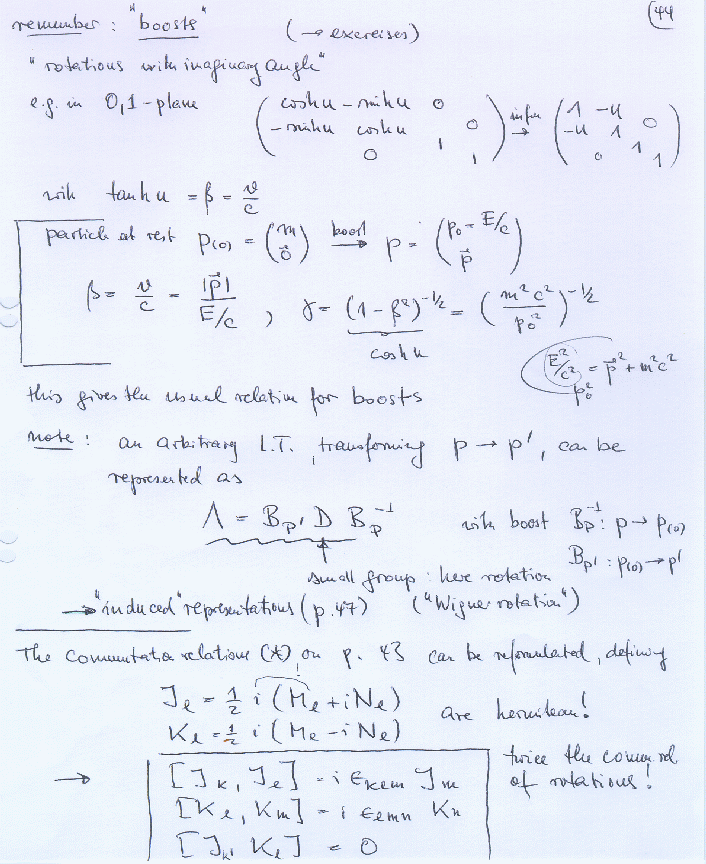 44
remember: "boosts" (→ exercises)
"rotations with imaginary angle"
e.g. in 0,1-plane ( cosh u - sinh u 0 / - sinh u cosh u 0 / 0 1 1 ) infin → ( 1 -u 0 / -u 1 / 0 1 1 )
with tanh u = β = v/c
particle at rest p(0) = ( m / 0⃗ ) boost → p = ( p₀ = E/c / p⃗ )
β = v/c = |p⃗| / E/c , γ = (1 - β²)^-1/2 = ( m²c² / p₀² )^-1/2
cosh u
E²/c² = p⃗² + m²c²
p₀²
this gives the usual relation for boosts
note: an arbitrary L.T., transforming p → p', can be
represented as
Λ = B_p' D B_p^-1 with boost B_p^-1 : p → p(0)
B_p' : p(0) → p'
small group: here rotation
→ "induced" representations (p.47) ("Wigner rotation")
The commutator relations (*) on p. 43 can be reformulated, defining
J_l = 1/2 i (M_l + i N_l)
K_l = 1/2 i (M_l - i N_l) are hermitean!
→ [J_k, J_l] = i ε_klm J_m twice the comm. rel.
[K_l, K_m] = i ε_lmn K_n of rotations!
[J_k, K_l] = 0